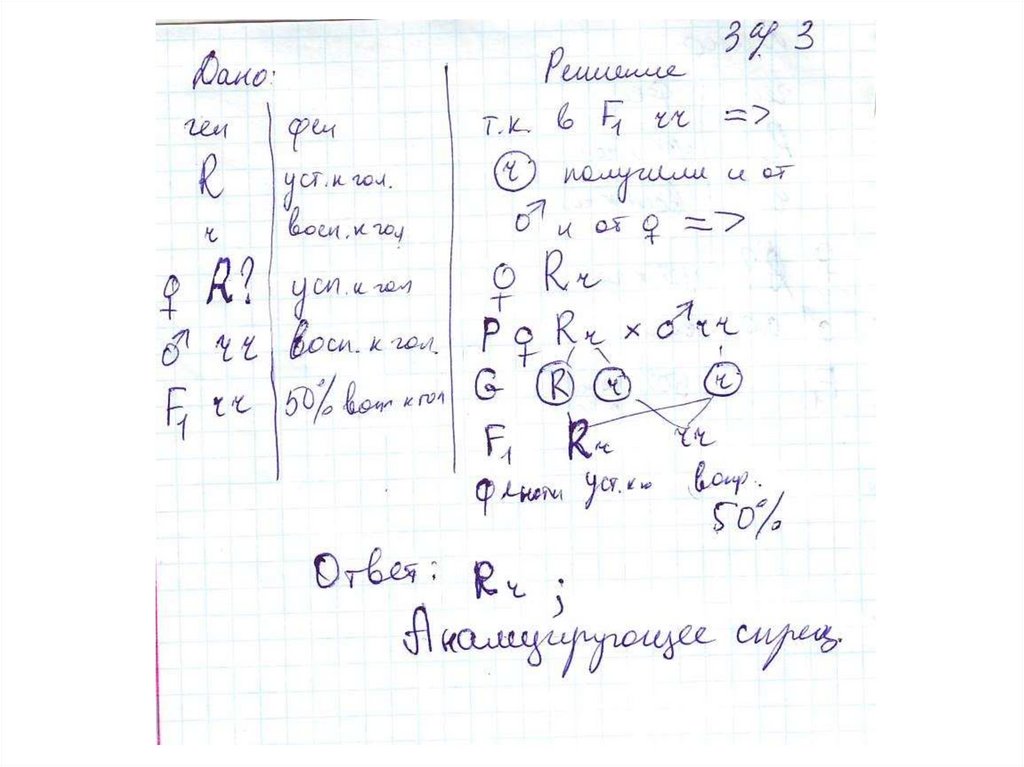 Зад 3
Дано:
ген фен
R уст. к гол.
r восп. к гол
♀ R? усп. к гол
♂ rr восп. к гол.
F₁ rr 50% восп к гол
Решение
т.к. в F₁ rr =>
r получили и от
♂ и от ♀ =>
♀ Rr
P ♀ Rr × ♂ rr
G R r r
F₁ Rr rr
Феноти уст. восп.
50%
Ответ: Rr ;
Анализирующее скрещ.